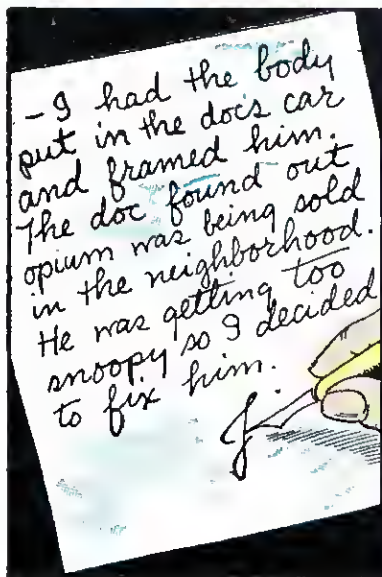 - I had the body
put in the doc's car
and framed him.
The doc found out
opium was being sold
in the neighborhood.
He was getting too
snoopy so I decided
to fix him.